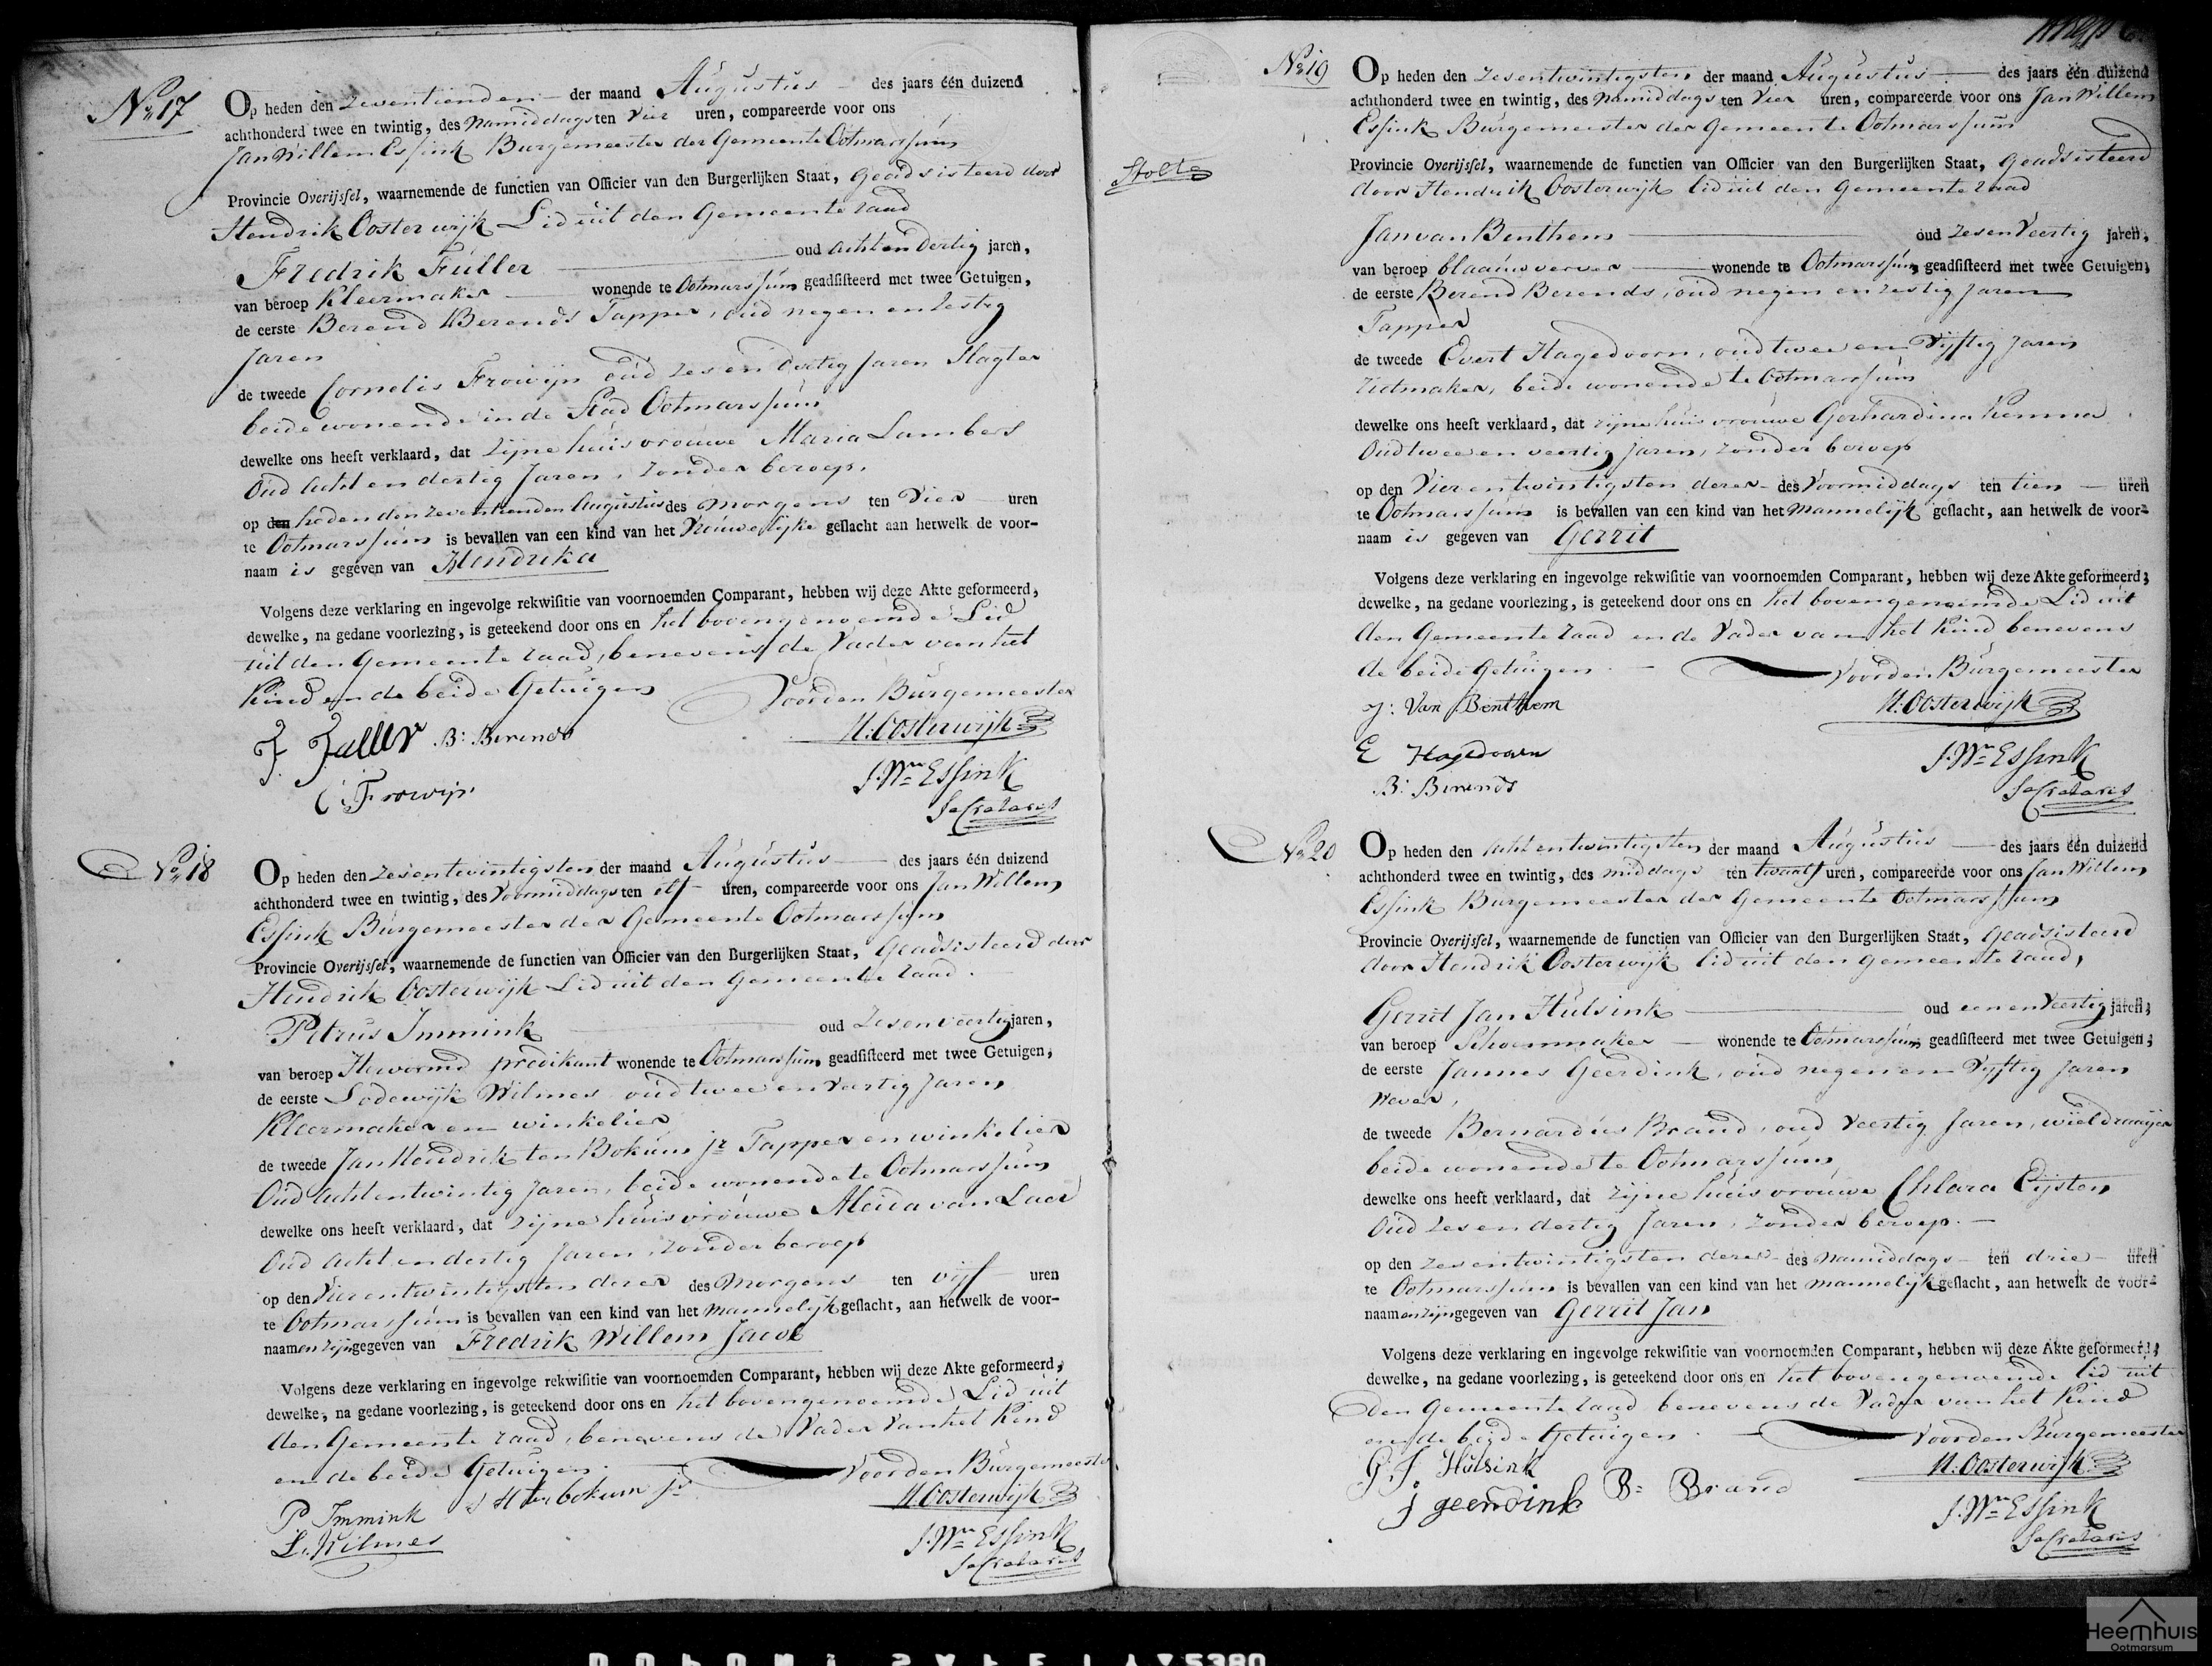 No 17
Op heden den zeventienden der maand Augustus des jaars één duizend
achthonderd twee en twintig, des Namiddags ten Vier uren, compareerde voor ons
Jan Willem Essink Burgemeester der Gemeente Ootmarssum
Provincie Overijssel, waarnemende de functien van Officier van den Burgerlijken Staat, Geadsisteerd door
Hendrik Oosterwijk Lid uit den Gemeente raad
Fredrik Fuller oud acht en dertig jaren,
van beroep Kleermaker wonende te Ootmarssum geadsisteerd met twee Getuigen,
de eerste Berend Berends Tapper, oud negen en zestig
Jaren
de tweede Cornelis Frowijn oud zes en dertig Jaren Slagter
beide wonende in de Stad Ootmarssum
dewelke ons heeft verklaard, dat zijne huisvrouwe Maria Lambers
Oud acht en dertig Jaren, zonder beroep.
op den heden den zeventienden Augustus des morgens ten Vier uren
te Ootmarssum is bevallen van een kind van het Vrouwelijke geslacht aan hetwelk de voor-
naam is gegeven van Hendrika
Volgens deze verklaring en ingevolge rekwisitie van voornoemden Comparant, hebben wij deze Akte geformeerd,
dewelke, na gedane voorlezing, is geteekend door ons en het bovengenoemde Lid
uit den Gemeente raad, benevens de Vader van het
Kind en de beide Getuigen Voor den Burgemeester
F. Fuller B: Berends H: Oosterwijk
C: Frowijn J. Wm Essink
Secretaris
No 18
Op heden den zesentwintigsten der maand Augustus des jaars één duizend
achthonderd twee en twintig, des Voormiddags ten elf uren, compareerde voor ons Jan Willem
Essink Burgemeester der Gemeente Ootmarssum
Provincie Overijssel, waarnemende de functien van Officier van den Burgerlijken Staat, Geadsisteerd door
Hendrik Oosterwijk Lid uit den Gemeente raad.
Petrus Immink oud zes en veertig jaren,
van beroep Hervormd predikant wonende te Ootmarssum geadsisteerd met twee Getuigen,
de eerste Lodewijk Wilmes oud twee en veertig Jaren
Kleermaker en winkelier
de tweede Jan Hendrik ten Bokum jr Tapper en winkelier
Oud acht en twintig Jaren, beide wonende te Ootmarssum
dewelke ons heeft verklaard, dat zijne huisvrouwe Aleida van Laer
Oud acht en dertig Jaren, zonder beroep
op den Vier en twintigsten dezer des Morgens ten vijf uren
te Ootmarssum is bevallen van een kind van het mannelijk geslacht, aan hetwelk de voor-
naamen zijn gegeven van Fredrik Willem Jacob
Volgens deze verklaring en ingevolge rekwisitie van voornoemden Comparant, hebben wij deze Akte geformeerd,
dewelke, na gedane voorlezing, is geteekend door ons en het bovengenoemde Lid uit
den Gemeente raad, benevens de Vader van het Kind
en de beide Getuigen. Voor den Burgemeester
P Immink J H ten bokum jr H. Oosterwijk
L. Wilmes J. Wm Essink
Secretaris
No 19
Stolte
Op heden den zesentwintigsten der maand Augustus des jaars één duizend
achthonderd twee en twintig, des Namiddags ten Vier uren, compareerde voor ons Jan Willem
Essink Burgemeester der Gemeente Ootmarssum
Provincie Overijssel, waarnemende de functien van Officier van den Burgerlijken Staat, Geadsisteerd
door Hendrik Oosterwijk lid uit den Gemeente raad
Jan van Benthem oud zes en Veertig jaren,
van beroep blaauwverver wonende te Ootmarssum geadsisteerd met twee Getuigen,
de eerste Berend Berends, oud negen en zestig Jaren
Tapper
de tweede Evert Hagedoorn, oud twee en Vijftig Jaren
rietmaker, beide wonende te Ootmarssum
dewelke ons heeft verklaard, dat zijne huisvrouwe Gerhardina Kemna
Oud twee en veertig Jaren, zonder beroep
op den Vier en twintigsten dezer des Voormiddags ten tien uren
te Ootmarssum is bevallen van een kind van het Mannelijk geslacht, aan hetwelk de voor-
naam is gegeven van Gerrit
Volgens deze verklaring en ingevolge rekwisitie van voornoemden Comparant, hebben wij deze Akte geformeerd,
dewelke, na gedane voorlezing, is geteekend door ons en het bovengenoemde Lid uit
den Gemeente raad en de Vader van het Kind benevens
de beide Getuigen Voor den Burgemeester
J: Van Benthem H: Oosterwijk
E Hagedoorn J. Wm Essink
B: Berends Secretaris
No 20
Op heden den acht en twintigsten der maand Augustus des jaars één duizend
achthonderd twee en twintig, des middags ten twaalf uren, compareerde voor ons Jan Willem
Essink Burgemeester der Gemeente Ootmarssum
Provincie Overijssel, waarnemende de functien van Officier van den Burgerlijken Staat, Geadsisteerd
door Hendrik Oosterwijk lid uit den Gemeente raad,
Gerrit Jan Hulsink oud een en Veertig jaren,
van beroep Schoenmaker wonende te Ootmarssum geadsisteerd met twee Getuigen,
de eerste Jannes Geerdink, oud negen en Vijftig Jaren
Wever,
de tweede Bernardus Brand, oud Veertig Jaren, wieldraaijer
beide wonende te Ootmarssum
dewelke ons heeft verklaard, dat zijne huisvrouwe Chlara Eijsten
Oud zes en dertig Jaren, zonder beroep.
op den zes en twintigsten dezer des Namiddags ten drie uren
te Ootmarssum is bevallen van een kind van het mannelijk geslacht, aan hetwelk de voor-
naamen zijn gegeven van Gerrit Jan
Volgens deze verklaring en ingevolge rekwisitie van voornoemden Comparant, hebben wij deze Akte geformeerd,
dewelke, na gedane voorlezing, is geteekend door ons en het bovengenoemde lid uit
den Gemeente raad benevens de Vader van het Kind
en de beide Getuigen. Voor den Burgemeester
G. J. Hulsink B: Brand H: Oosterwijk
J geerdink J. Wm Essink
Secretaris
Heemhuis
Ootmarsum
5380